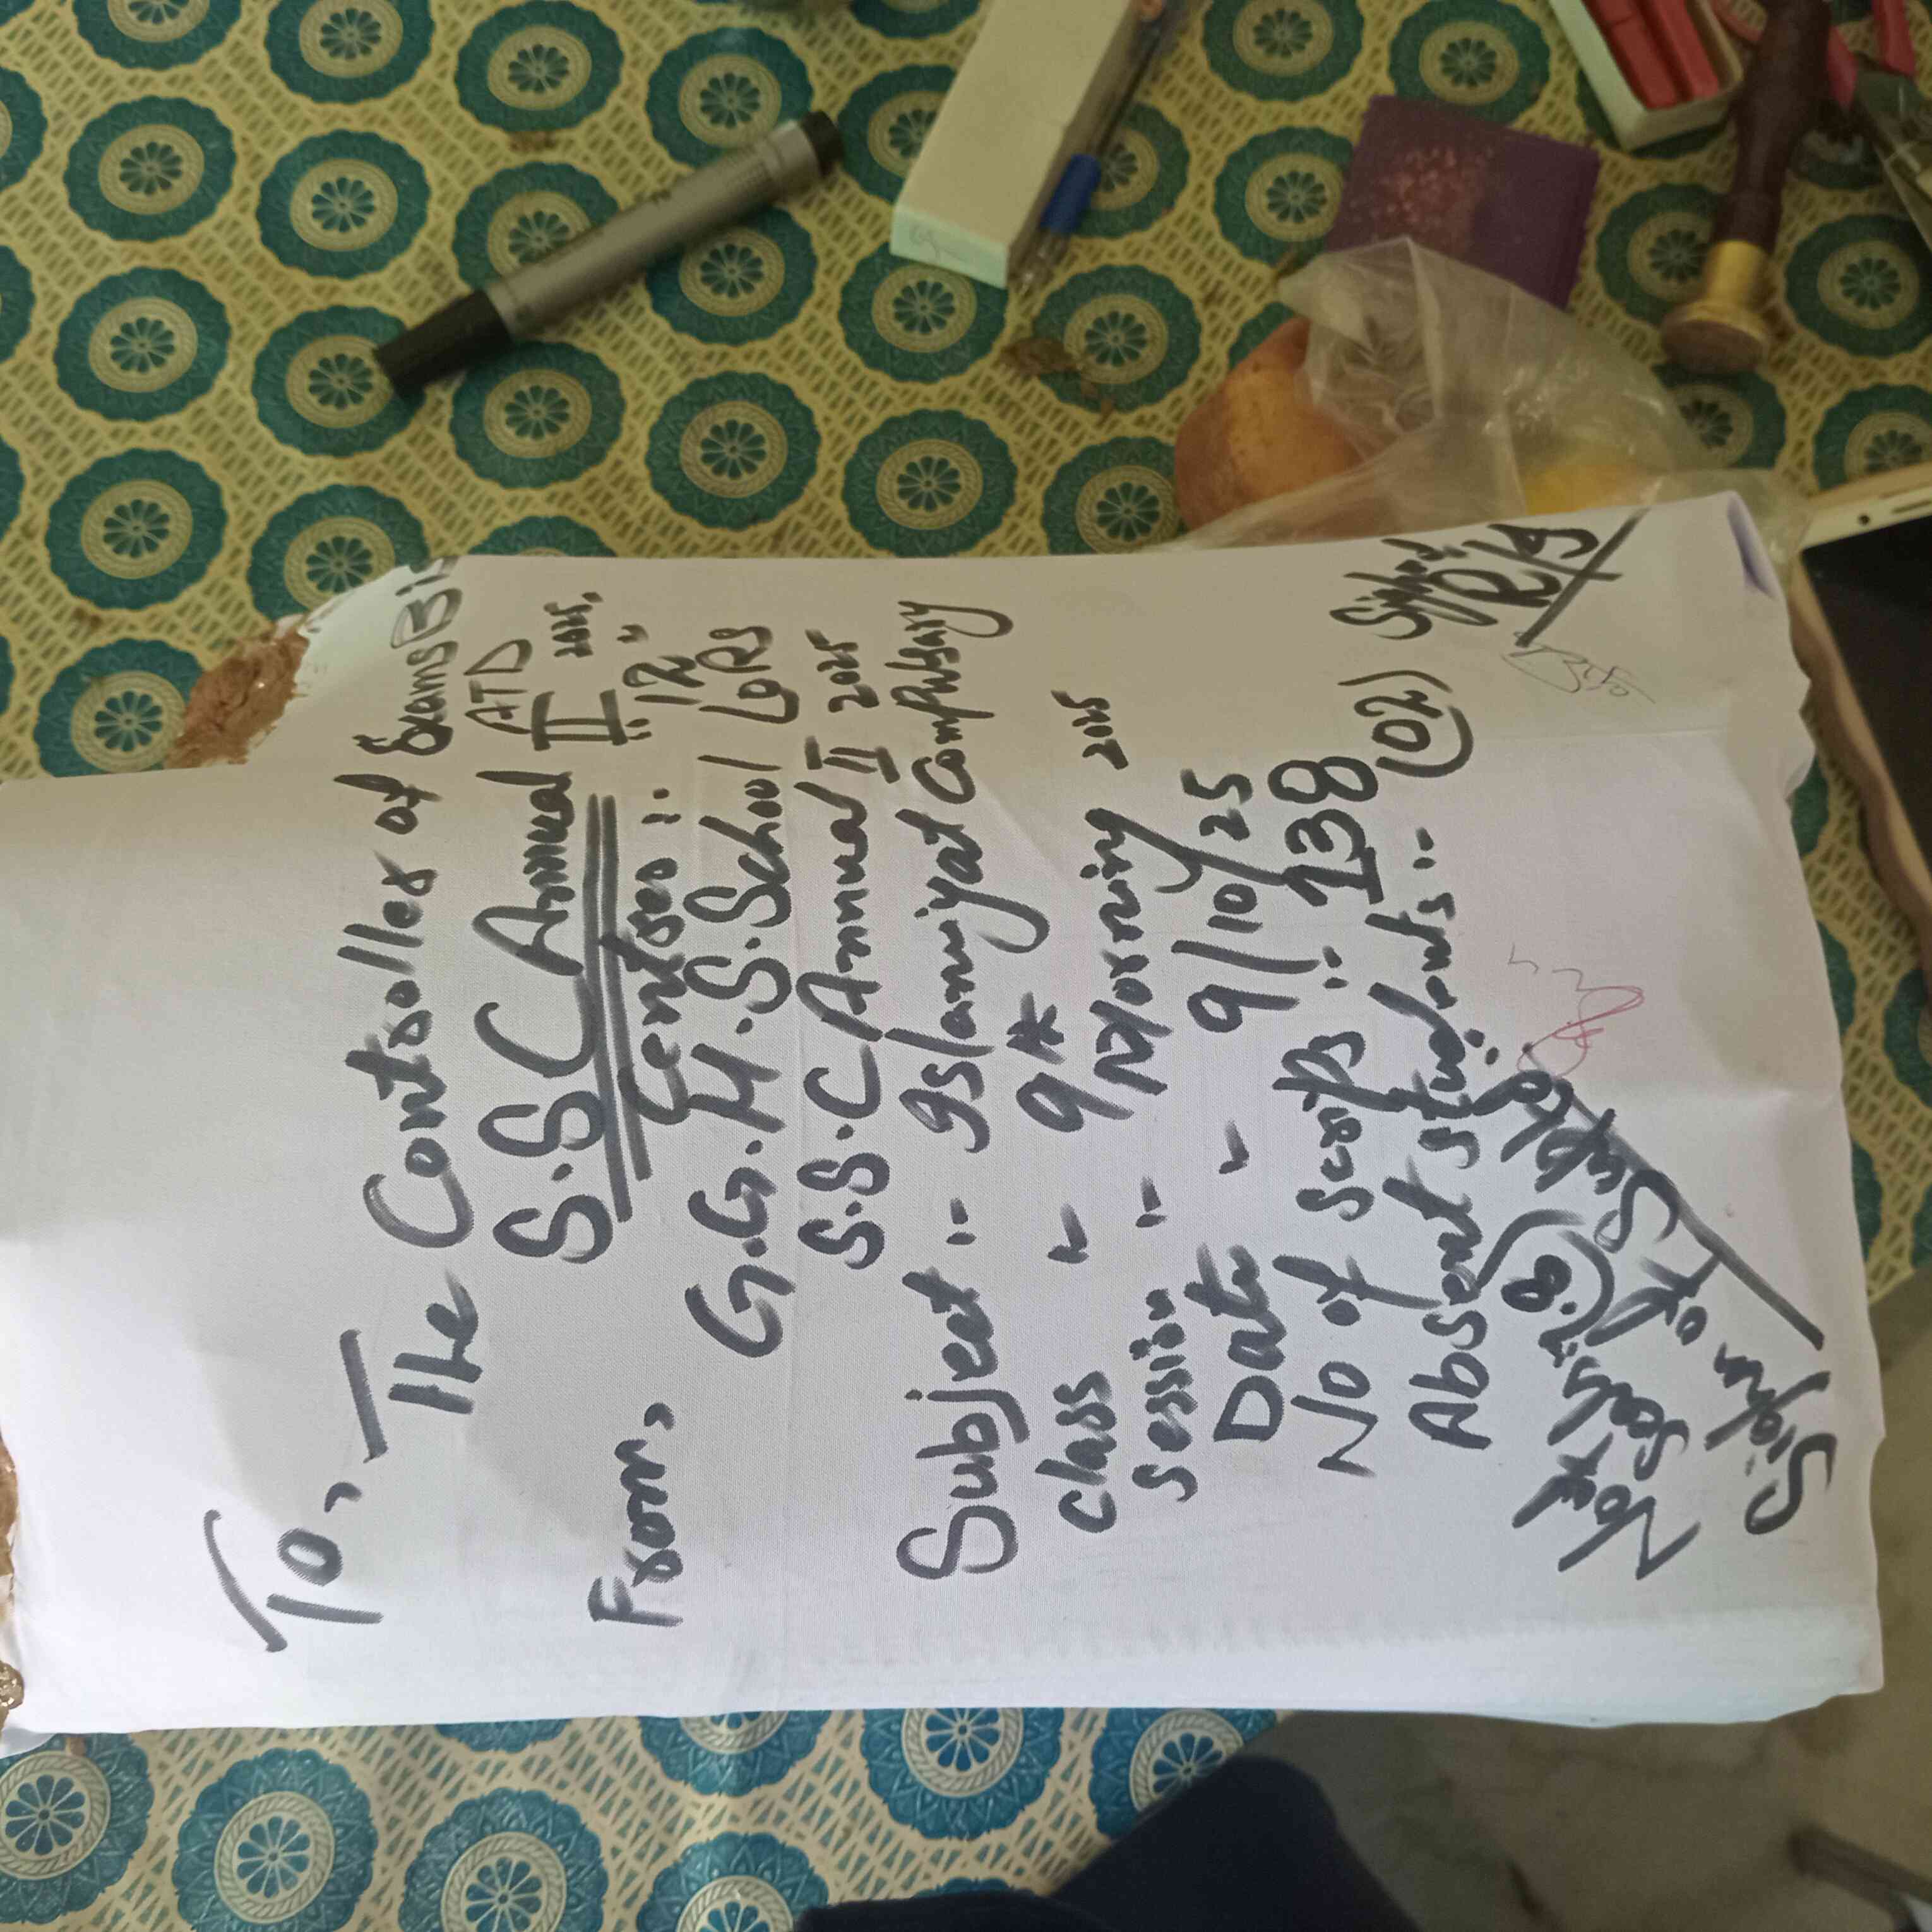 To,
The Controller of Exams BISE
ATD
S.S C Annual II 2025.
From,
Centre :. 12
G.G.H.S.School LoRS
S.S.C Annual II 2025
Subject :. Islamiyat Compulsary
Class " 9th
Session :. Morning 2025
Date " 9/10/25
No of Scripts :. 138
Absent Students :. (02)
Sign of Suptd:
Sign of
R/S